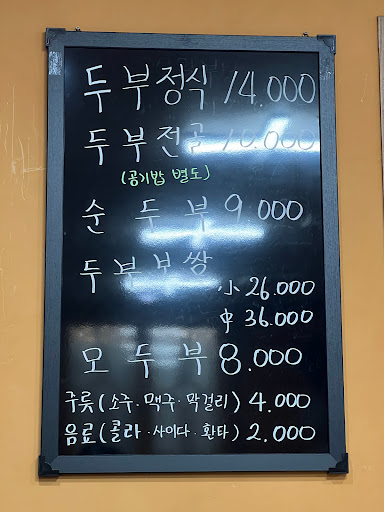 두부정식 14.000
두부전골 10.000
(공기밥 별도)
순두부 9.000
두부보쌈
小 26.000
中 36.000
모두부 8.000
주류(소주·맥주·막걸리) 4.000
음료(콜라·사이다·환타) 2.000